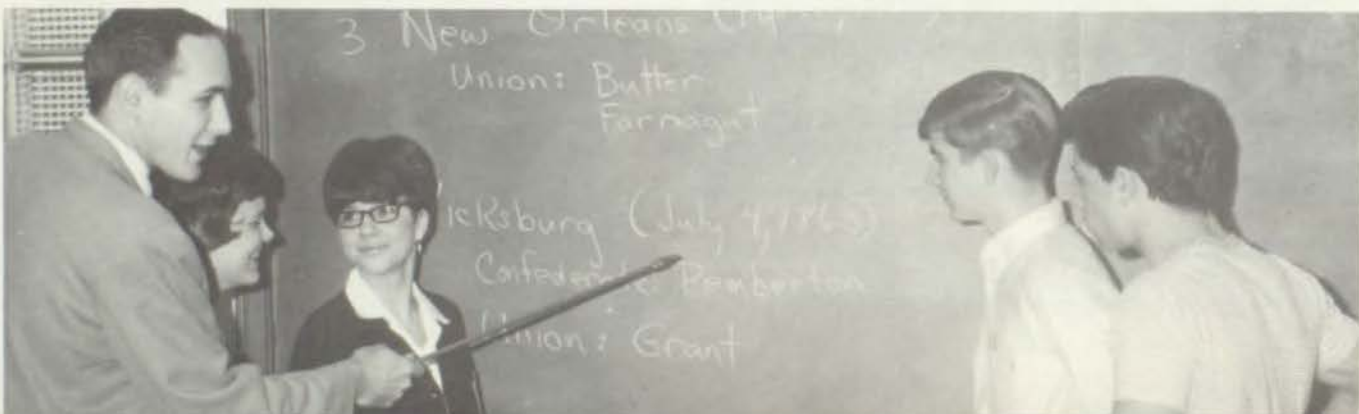 3 New Orleans
Union: Butler
Farragut
icksburg (July 4, 1863)
Confederate: Pemberton
Union: Grant